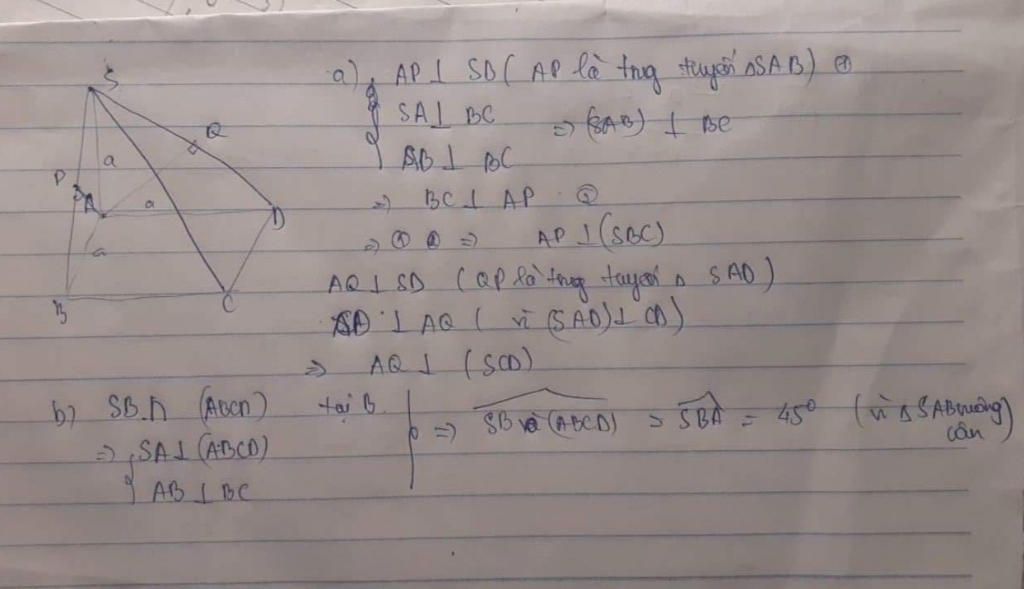 S
Q
P
a
A
a
D
a
B
C
a) AP ⊥ SB ( AP là trng tuyến ΔSAB) ①
SA ⊥ BC
⇒ (SAB) ⊥ BC
AB ⊥ BC
⇒ BC ⊥ AP ②
⇒ ① ② ⇒ AP ⊥ (SBC)
AQ ⊥ SD ( QP là trng tuyến Δ SAD)
⊥ AQ ( vì (SAD) ⊥ CD)
⇒ AQ ⊥ (SCD)
b) SB ∩ (ABCD) tại B
⇒ SA ⊥ (ABCD)
AB ⊥ BC
⇒ SB và (ABCD) = SBA = 45° ( vì Δ SAB vuông
cân )